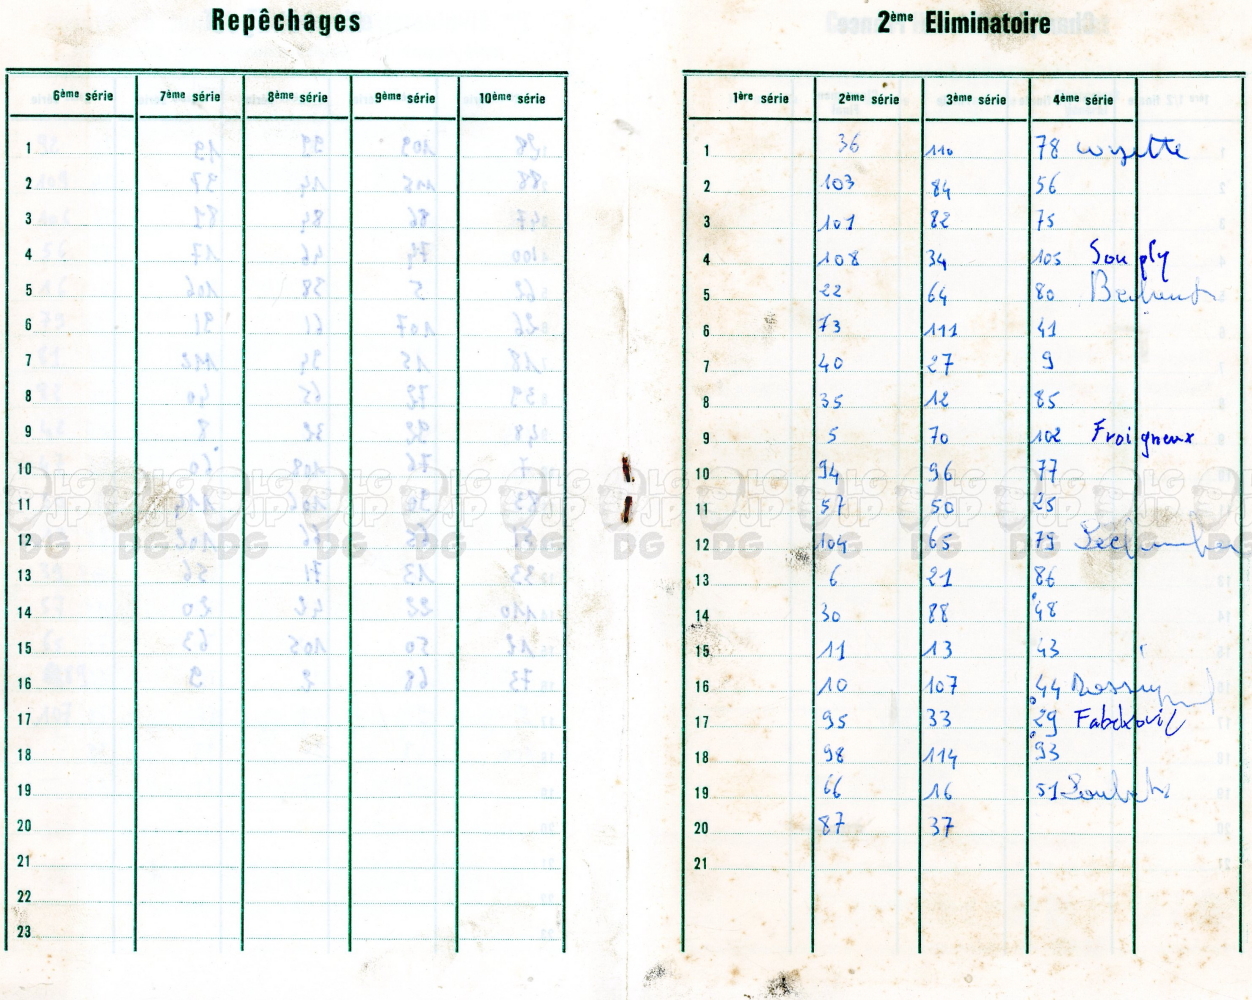 Repêchages
6ème série 7ème série 8ème série 9ème série 10ème série
1
2
3
4
5
6
7
8
9
10
11
12
13
14
15
16
17
18
19
20
21
22
23
2ème Eliminatoire
1ère série 2ème série 3ème série 4ème série
1 36 110 78 Cozette
2 103 84 56
3 101 82 75
4 108 34 105 Souply
5 22 64 80
6 73 111 41
7 40 27 9
8 35 12 85
9 5 70 102 Froigneux
10 94 96 77
11 57 50 25
12 104 65 79
13 6 21 86
14 30 88 48
15 11 13 43
16 10 107 44
17 95 33 29
18 98 114 93
19 66 16 51
20 87 37
21
LG
JP
DG